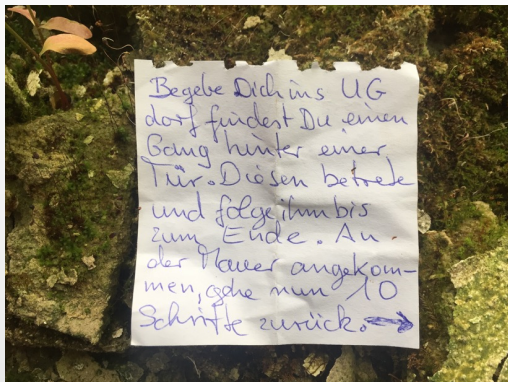 Begebe Dich ins UG
dort findest Du einen
Gang hinter einer
Tür. Diesen betrete
und folge ihm bis
zum Ende. An
der Mauer angekom-
men, gehe nun 10
Schritte zurück. →